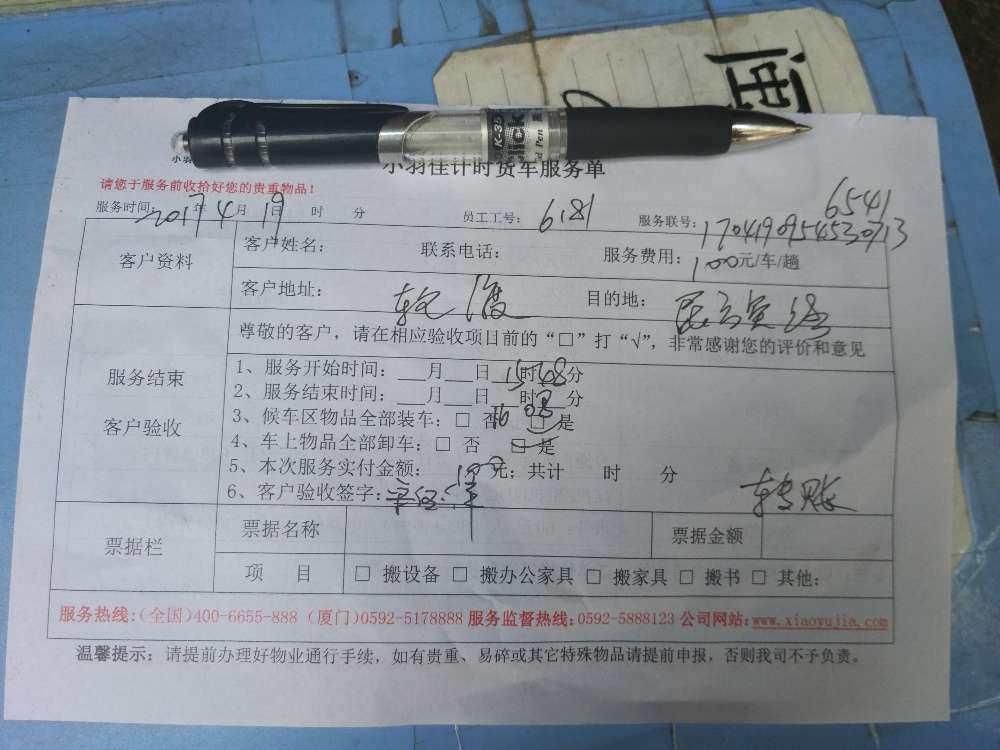 K-35
小羽佳计时货车服务单
请您于服务前收拾好您的贵重物品!
服务时间: 2017年4月19日 时 分 员工工号: 6181 服务联号: 6541
1704190954530713
客户资料 客户姓名: 联系电话: 服务费用: 100元/车/趟
客户地址: 软件 目的地:
尊敬的客户,请在相应验收项目前的“□”打“√”,非常感谢您的评价和意见
服务结束
客户验收
1、服务开始时间:___月___日15时08分
2、服务结束时间:___月___日16时08分
3、候车区物品全部装车:□ 否 □ 是
4、车上物品全部卸车:□ 否 □ 是
5、本次服务实付金额: 元;共计 时 分
6、客户验收签字: 转账
票据栏 票据名称 票据金额
项 目 □ 搬设备 □ 搬办公家具 □ 搬家具 □ 搬书 □ 其他:
服务热线:(全国)400-6655-888 (厦门)0592-5178888 服务监督热线:0592-5888123 公司网站:www.xiaoyujia.com
温馨提示:请提前办理好物业通行手续,如有贵重、易碎或其它特殊物品请提前申报,否则我司不予负责。